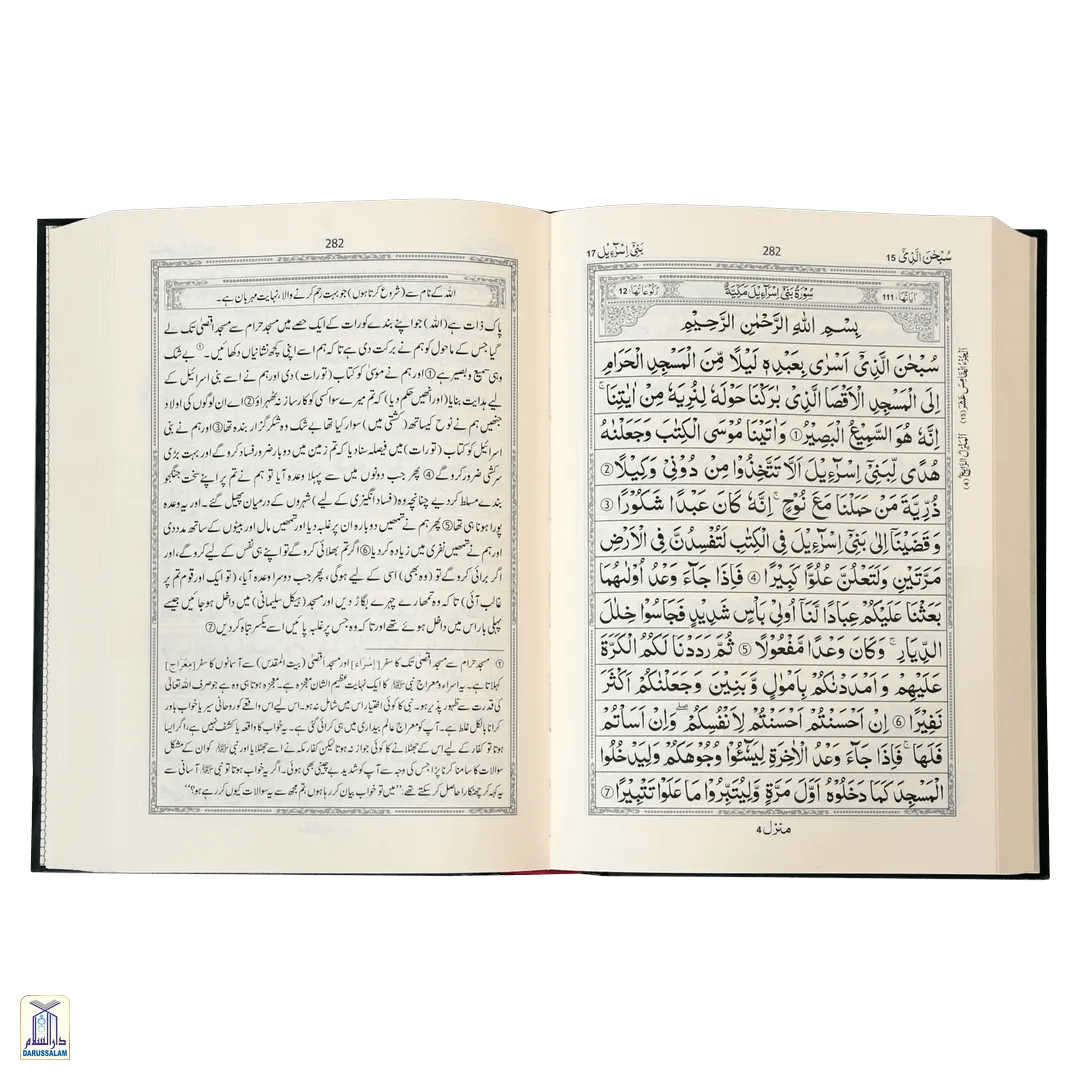 سُبْحٰنَ الَّذِیْۤ 15
282
بَنِیْۤ اِسْرَآءِیْل 17
اٰیَاتُهَا: 111
سُوْرَةُ بَنِیْۤ اِسْرَآءِیْلَ مَكِّیَّةٌ
رُكُوْعَاتُهَا: 12
بِسْمِ اللّٰهِ الرَّحْمٰنِ الرَّحِیْمِ
سُبْحٰنَ الَّذِیْۤ اَسْرٰی بِعَبْدِهٖ لَیْلًا مِّنَ الْمَسْجِدِ الْحَرَامِ
اِلَی الْمَسْجِدِ الْاَقْصَا الَّذِیْ بٰرَكْنَا حَوْلَهٗ لِنُرِیَهٗ مِنْ اٰیٰتِنَا ؕ
اِنَّهٗ هُوَ السَّمِیْعُ الْبَصِیْرُ ① وَاٰتَیْنَا مُوْسَی الْكِتٰبَ وَجَعَلْنٰهُ
هُدًی لِّبَنِیْۤ اِسْرَآءِیْلَ اَلَّا تَتَّخِذُوْا مِنْ دُوْنِیْ وَكِیْلًا ②
ذُرِّیَّةَ مَنْ حَمَلْنَا مَعَ نُوْحٍ ؕ اِنَّهٗ كَانَ عَبْدًا شَكُوْرًا ③
وَقَضَیْنَاۤ اِلٰی بَنِیْۤ اِسْرَآءِیْلَ فِی الْكِتٰبِ لَتُفْسِدُنَّ فِی الْاَرْضِ
مَرَّتَیْنِ وَلَتَعْلُنَّ عُلُوًّا كَبِیْرًا ④ فَاِذَا جَآءَ وَعْدُ اُوْلٰىهُمَا
بَعَثْنَا عَلَیْكُمْ عِبَادًا لَّنَاۤ اُولِیْ بَاْسٍ شَدِیْدٍ فَجَاسُوْا خِلٰلَ
الدِّیَارِ ؕ وَكَانَ وَعْدًا مَّفْعُوْلًا ⑤ ثُمَّ رَدَدْنَا لَكُمُ الْكَرَّةَ
عَلَیْهِمْ وَاَمْدَدْنٰكُمْ بِاَمْوَالٍ وَّبَنِیْنَ وَجَعَلْنٰكُمْ اَكْثَرَ
نَفِیْرًا ⑥ اِنْ اَحْسَنْتُمْ اَحْسَنْتُمْ لِاَنْفُسِكُمْ ۫ وَاِنْ اَسَاْتُمْ
فَلَهَا ؕ فَاِذَا جَآءَ وَعْدُ الْاٰخِرَةِ لِیَسُوْٓءٗا وُجُوْهَكُمْ وَلِیَدْخُلُوا
الْمَسْجِدَ كَمَا دَخَلُوْهُ اَوَّلَ مَرَّةٍ وَّلِیُتَبِّرُوْا مَا عَلَوْا تَتْبِیْرًا ⑦
منزل 4
اَلْجُزْءُ الْخَامِسَ عَشَرَ (15)
اَلْمَنْزِلُ الرَّابِعُ (4)
282
اللہ کے نام سے (شروع کرتا ہوں) جو بہت رحم کرنے والا، نہایت مہربان ہے۔
پاک ذات ہے (اللہ) جو اپنے بندے کو رات کے ایک حصے میں مسجد حرام سے مسجد اقصیٰ تک لے
گیا جس کے ماحول کو ہم نے برکت دی ہے تاکہ ہم اسے اپنی کچھ نشانیاں دکھائیں۔① بے شک
وہی سمیع و بصیر ہے① اور ہم نے موسیٰ کو کتاب (تورات) دی اور ہم نے اسے بنی اسرائیل کے
لیے ہدایت بنایا (اور انھیں حکم دیا) کہ تم میرے سوا کسی کو کارساز نہ ٹھہراؤ② اے ان لوگوں کی اولاد
جنھیں ہم نے نوح کے ساتھ (کشتی میں) سوار کیا تھا بے شک وہ شکر گزار بندہ تھا③ اور ہم نے بنی
اسرائیل کو کتاب (تورات) میں فیصلہ سنا دیا کہ تم زمین میں دوبار ضرور فساد کرو گے اور بہت بڑی
سرکشی ضرور کرو گے④ پھر جب دونوں میں سے پہلا وعدہ آیا تو ہم نے تم پر اپنے سخت جنگجو
بندے مسلط کر دیے چنانچہ وہ (فساد انگیزی کے لیے) شہروں کے درمیان پھیل گئے۔ اور یہ وعدہ
پورا ہونا ہی تھا⑤ پھر ہم نے تمھیں دوبارہ ان پر غلبہ دیا اور تمھیں مال اور بیٹوں کے ساتھ مدد دی
اور ہم نے تمھیں نفری میں زیادہ کر دیا⑥ اگر تم بھلائی کرو گے تو اپنے ہی نفس کے لیے کرو گے، اور
اگر برائی کرو گے تو (وہ بھی) اسی کے لیے ہوگی، پھر جب دوسرا وعدہ آیا، (تو ایک اور قوم تم پر
غالب آئی) تاکہ وہ تمھارے چہرے بگاڑ دیں اور مسجد (ہیکل سلیمانی) میں داخل ہو جائیں جیسے
پہلی بار اس میں داخل ہوئے تھے اور تاکہ وہ جس پر غلبہ پائیں اسے یکسر تباہ کر دیں⑦
① مسجد حرام سے مسجد اقصیٰ تک کا سفر [اِسْرَاء] اور مسجد اقصیٰ (بیت المقدس) سے آسمانوں کا سفر [مِعْرَاج]
کہلاتا ہے۔ یہ اسراء و معراج نبی ﷺ کا ایک نہایت عظیم الشان معجزہ ہے۔ معجزہ ہوتا ہی وہ ہے جو صرف اللہ تعالیٰ
کی قدرت سے ظہور پذیر ہو۔ نبی کا کوئی اختیار اس میں شامل نہ ہو۔ اس لیے اس واقعے کو روحانی سیر یا خواب باور
کرانا بالکل غلط ہے۔ آپ کو معراج عالم بیداری میں ہی کرائی گئی ہے۔ یہ خواب کا واقعہ یا کشف نہیں ہے، اگر ایسا
ہوتا تو کفار کے لیے اس کے جھٹلانے کا کوئی جواز نہ ہوتا لیکن کفار مکہ نے اسے جھٹلایا اور نبی ﷺ کو ان کے مشکل
سوالات کا سامنا کرنا پڑا جس کی وجہ سے آپ کو شدید بے چینی بھی ہوئی۔ اگر یہ خواب ہوتا تو نبی ﷺ آسانی سے
یہ کہہ کر چھٹکارا حاصل کر سکتے تھے: ’’میں تو خواب بیان کر رہا ہوں، تم مجھ سے یہ سوالات کیوں کر رہے ہو؟‘‘
دارالسلام
DARUSSALAM